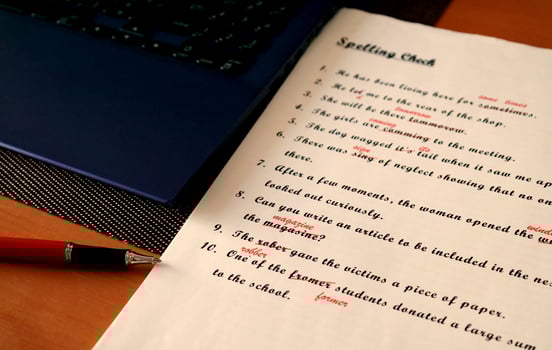 Spelling Check
some times
1. He has been living here for sometimes.
2. He let me to the rear of the shop.
tomorrow
3. She will be there tommorow.
coming
4. The girls are comming to the meeting.
5. The dog wagged it's tail when it saw me ap
sign
6. There was sing of neglect showing that no on
there.
7. After a few moments, the woman opened the
looked out curiously.
8. Can you write an article to be included in the ne
magazine
the magasine?
9. The rober gave the victims a piece of paper.
robber
10. One of the fromer students donated a large sum
former
to the school.